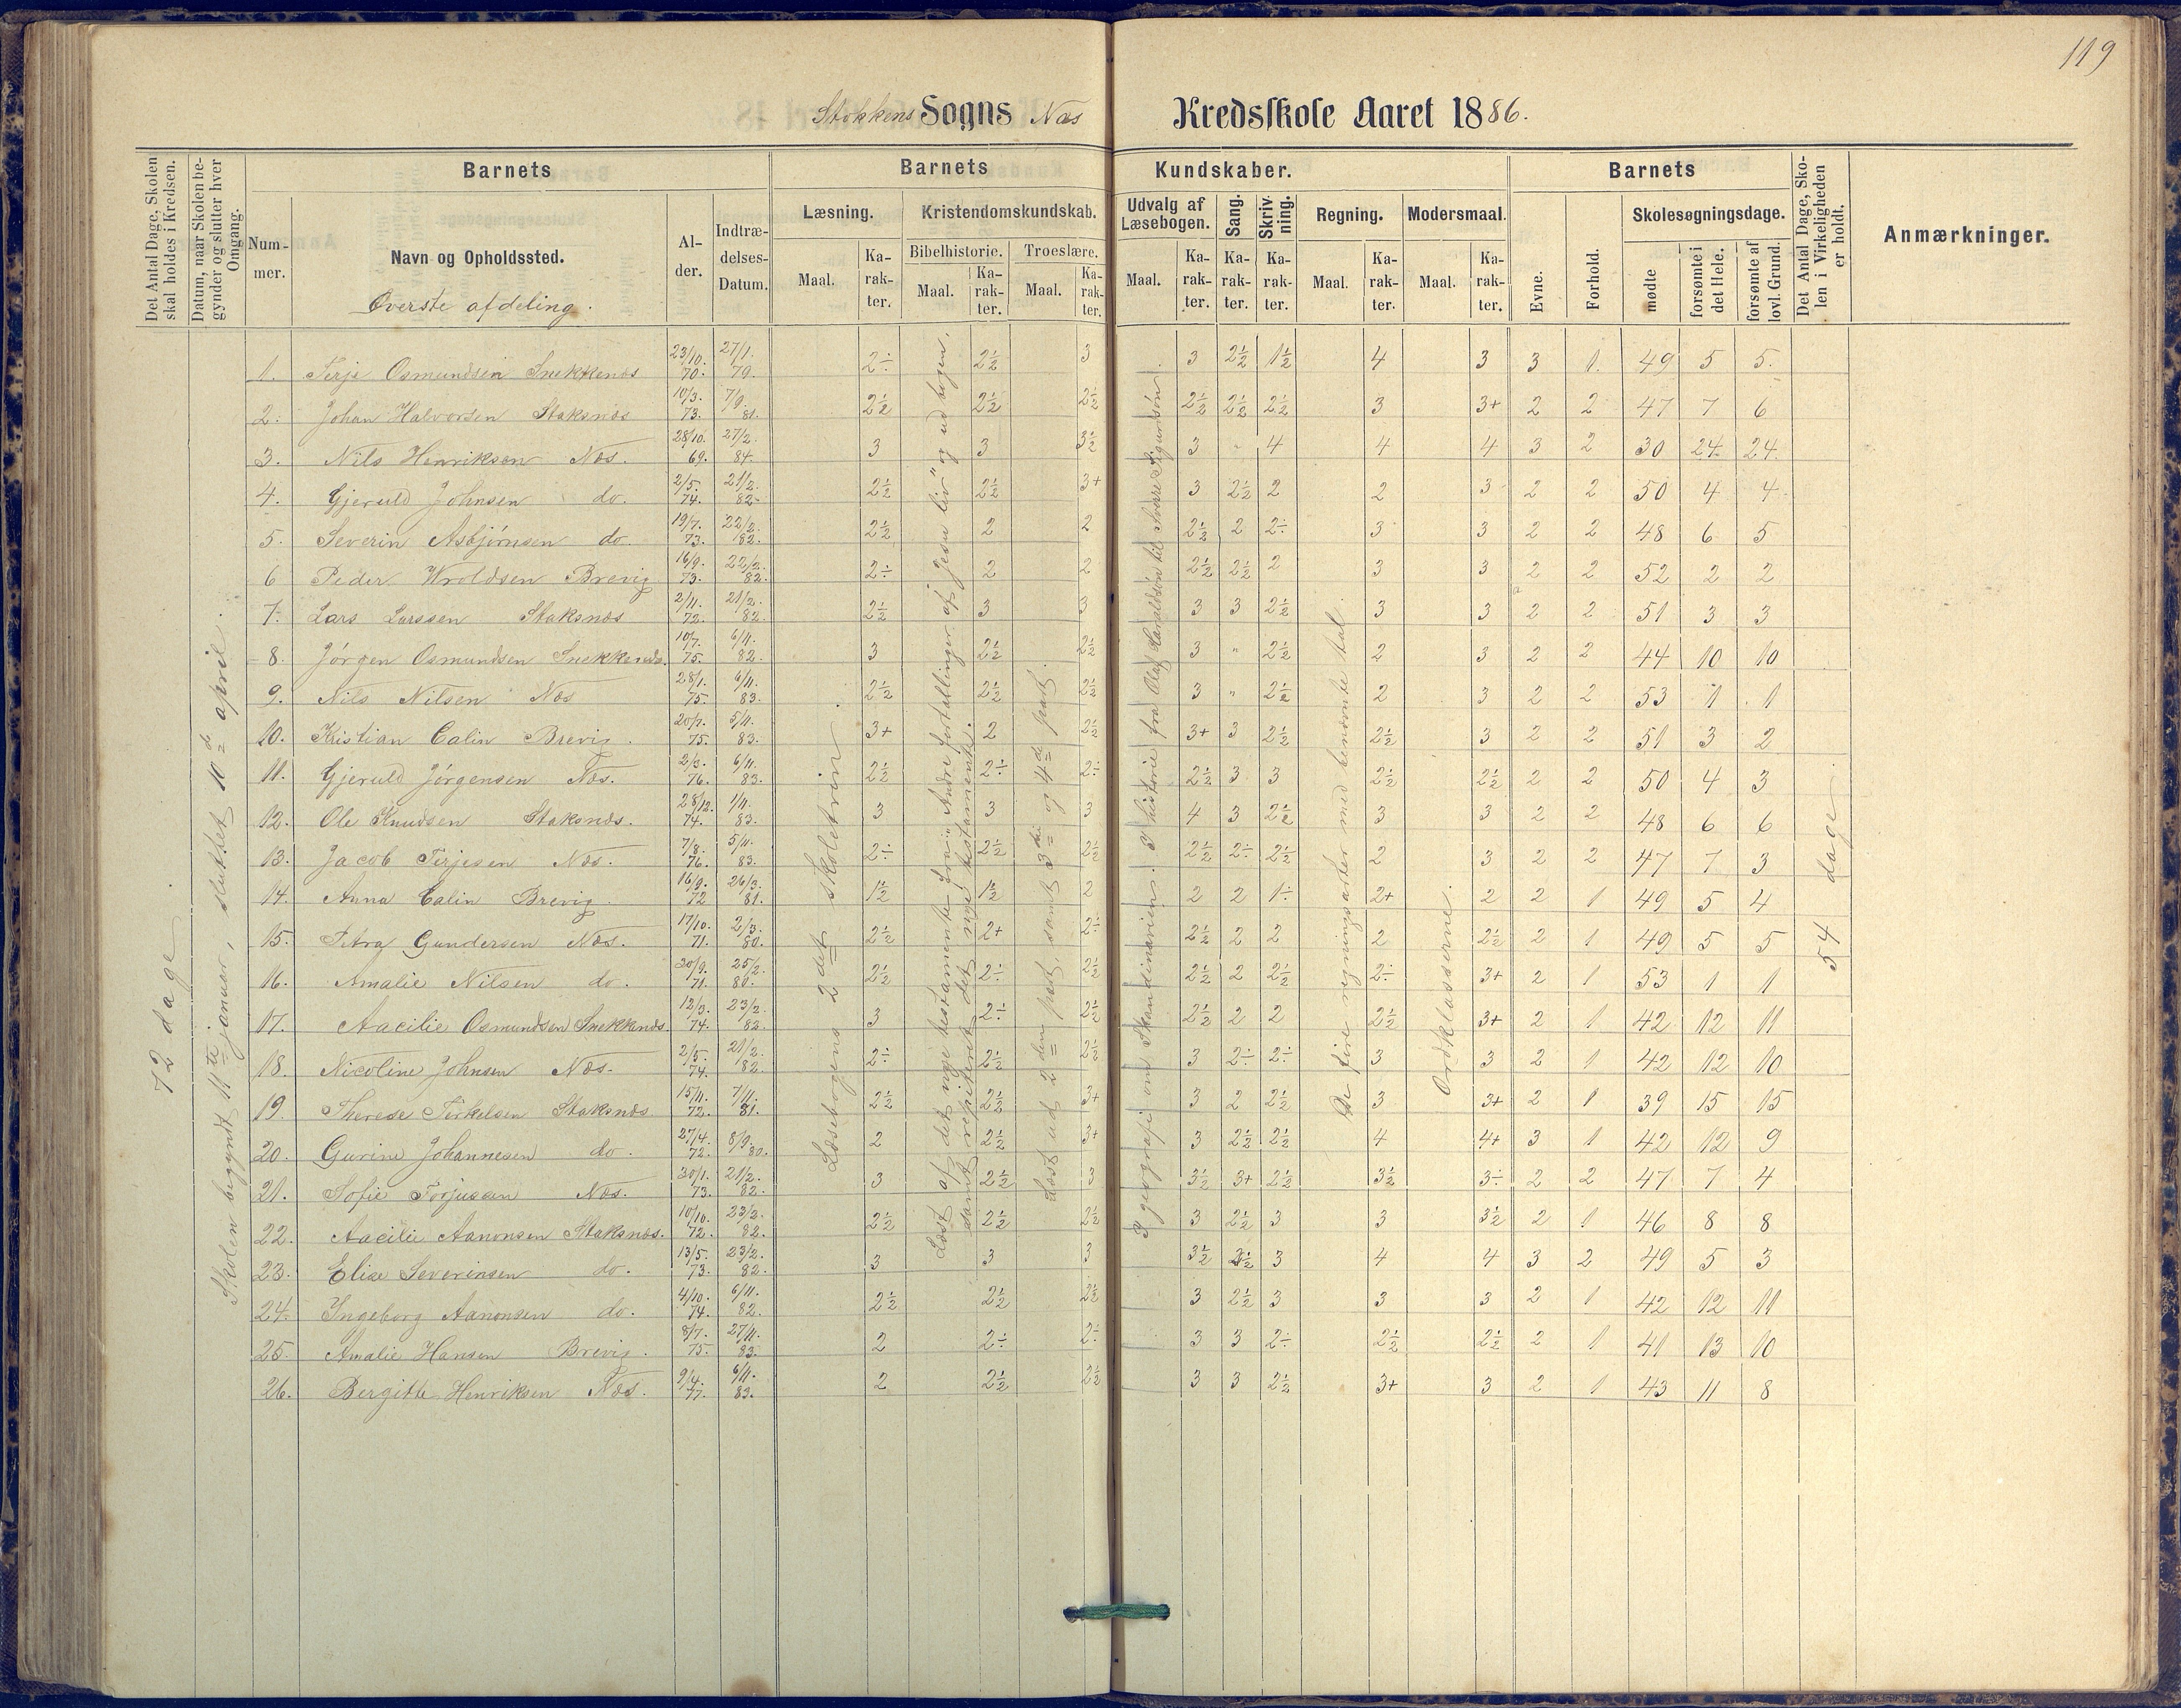 119
Stokkens Sogns Næs Kredsskole Aaret 1886.
Det Antal Dage, Skolen skal holdes i Kredsen.
Datum, naar Skolen begynder og slutter hver Omgang.
Barnets
Nummer.
Navn og Opholdssted.
Øverste afdeling.
Alder.
Indtrædelses-Datum.
Barnets Kundskaber.
Læsning.
Maal. Karakter.
Kristendomskundskab.
Bibelhistorie.
Maal. Karakter.
Troeslære.
Maal. Karakter.
Udvalg af Læsebogen.
Maal. Karakter.
Sang.
Karakter.
Skrivning.
Karakter.
Regning.
Maal. Karakter.
Modersmaal.
Maal. Karakter.
Barnets
Evne.
Forhold.
Skolesøgningsdage.
mødte
forsømte i det Hele.
forsømte af lovl. Grund.
Det Antal Dage, Skolen i Virkeligheden er holdt.
Anmærkninger.
72 dage.
Skolen begyndt 11te januar, sluttet 10de april.
Læsebogens 2det skoletrin.
Læst af det nye testamente fra "Andre fortællinger af Jesu liv" og ud bogen, samt repeteret det nye testamente.
Læst ud 2den part, samt 3die og 4de part.
I geografi om Skandinavien. I historie fra Olaf Haraldsøn til Sverre Sigurdsøn.
De fire regningsarter med benævnte tal.
Ordklasserne.
54 dage.
1. Terje Osmundsen Snekkenæs 23/10. 70. 27/1. 79. 2÷ 2½ 3 3 2½ 1½ 4 3 3 1. 49 5 5.
2. Johan Halvorsen Staksnæs 10/3. 73. 7/9. 81. 2½ 2½ 2½ 2½ 2½ 2½ 3 3+ 2 2 47 7 6
3. Nils Henriksen Næs. 28/10. 69. 27/2. 84. 3 3 3½ 3 " 4 4 4 3 2 30 24 24
4. Gjeruld Johnsen do. 2/5. 74. 21/2. 82. 2½ 2½ 3+ 3 2½ 2 2 3 2 2 50 4 4
5. Severin Asbjörnsen do. 19/7. 73. 22/2. 82. 2½ 2 2 2½ 2 2÷ 3 3 2 2 48 6 5
6 Peder Wroldsen Brevig 16/9. 73. 22/2. 82. 2÷ 2 2 2½ 2½ 2 3 3 2 2 52 2 2
7. Lars Larssen Staksnæs 2/11. 72. 21/2. 82. 2½ 3 3 3 3 2½ 3 3 2 2 51 3 3
8. Jörgen Osmundsen Snekkenæs. 10/7. 75. 6/11. 82. 3 2½ 2½ 3 " 2½ 2 3 2 2 44 10 10
9. Nils Nilsen Næs 28/1. 75. 6/11. 83. 2½ 2½ 2½ 3 " 2½ 2 3 2 2 53 1 1
10. Kristian Calin Brevig. 20/7. 75. 5/11. 83. 3+ 2 2½ 3+ 3 2½ 2½ 3 2 2 51 3 2
11. Gjeruld Jörgensen Næs. 2/3. 76. 6/11. 83. 2½ 2÷ 2÷ 2½ 3 3 2½ 2½ 2 2 50 4 3
12. Ole Knudsen Staksnæs. 28/12. 74. 1/11. 83. 3 3 3 4 3 2½ 3 3 2 2 48 6 6
13. Jacob Terjesen Næs. 7/8. 76. 5/11. 83. 2÷ 2½ 2½ 2½ 2÷ 2½ 2 3 2 2 47 7 3
14. Anna Calin Brevig. 16/9. 72 26/3. 81. 1½ 1½ 2 2 2 1÷ 2+ 2 2 1 49 5 4
15. Petra Gundersen Næs. 17/10. 71. 2/3. 80. 2½ 2+ 2÷ 2½ 2 2 2 2½ 2 1 49 5 5
16. Amalie Nilsen do. 20/9. 71. 25/2. 80. 2½ 2÷ 2½ 2½ 2 2½ 2÷ 3+ 2 1 53 1 1
17. Aacilie Osmundsen Snekkenæs 12/3. 74. 23/2. 82. 3 2÷ 2½ 2½ 2 2 2½ 3+ 2 1 42 12 11
18. Nicoline Johnsen Næs. 2/5. 74. 21/2. 82. 2÷ 2½ 2½ 3 2÷ 2÷ 3 3 2 1 42 12 10
19. Therese Terkelsen Staksnæs 15/11. 72. 7/11. 81. 2½ 2½ 3+ 3 2 2½ 3 3+ 2 1 39 15 15
20. Gurine Johannesen do. 27/4. 72. 8/9. 80. 2 2½ 3+ 3 2½ 2½ 4 4+ 3 1 42 12 9
21. Sofie Torjussen Næs. 30/1. 73. 21/2. 82. 3 2½ 3 3½ 3+ 2½ 3½ 3÷ 2 2 47 7 4
22. Aacilie Aanonsen Staksnæs. 10/10. 72. 23/2. 82. 2½ 2½ 2½ 3 2½ 3 3 3½ 2 1 46 8 8
23. Elise Severinsen do. 13/5. 73. 23/2. 82. 3 3 3 3½ 2½ 3 4 4 3 2 49 5 3
24. Ingeborg Aanonsen do. 4/10. 74. 6/11. 82. 2½ 2½ 2½ 3 2½ 3 3 3 2 1 42 12 11
25. Amalie Hansen Brevig. 8/7. 75. 27/11. 83. 2 2÷ 2÷ 3 3 2÷ 2½ 2½ 2 1 41 13 10
26. Bergitte Henriksen Næs. 9/4. 77. 6/11. 83. 2 2½ 2½ 3 3 2½ 3+ 3 2 1 43 11 8